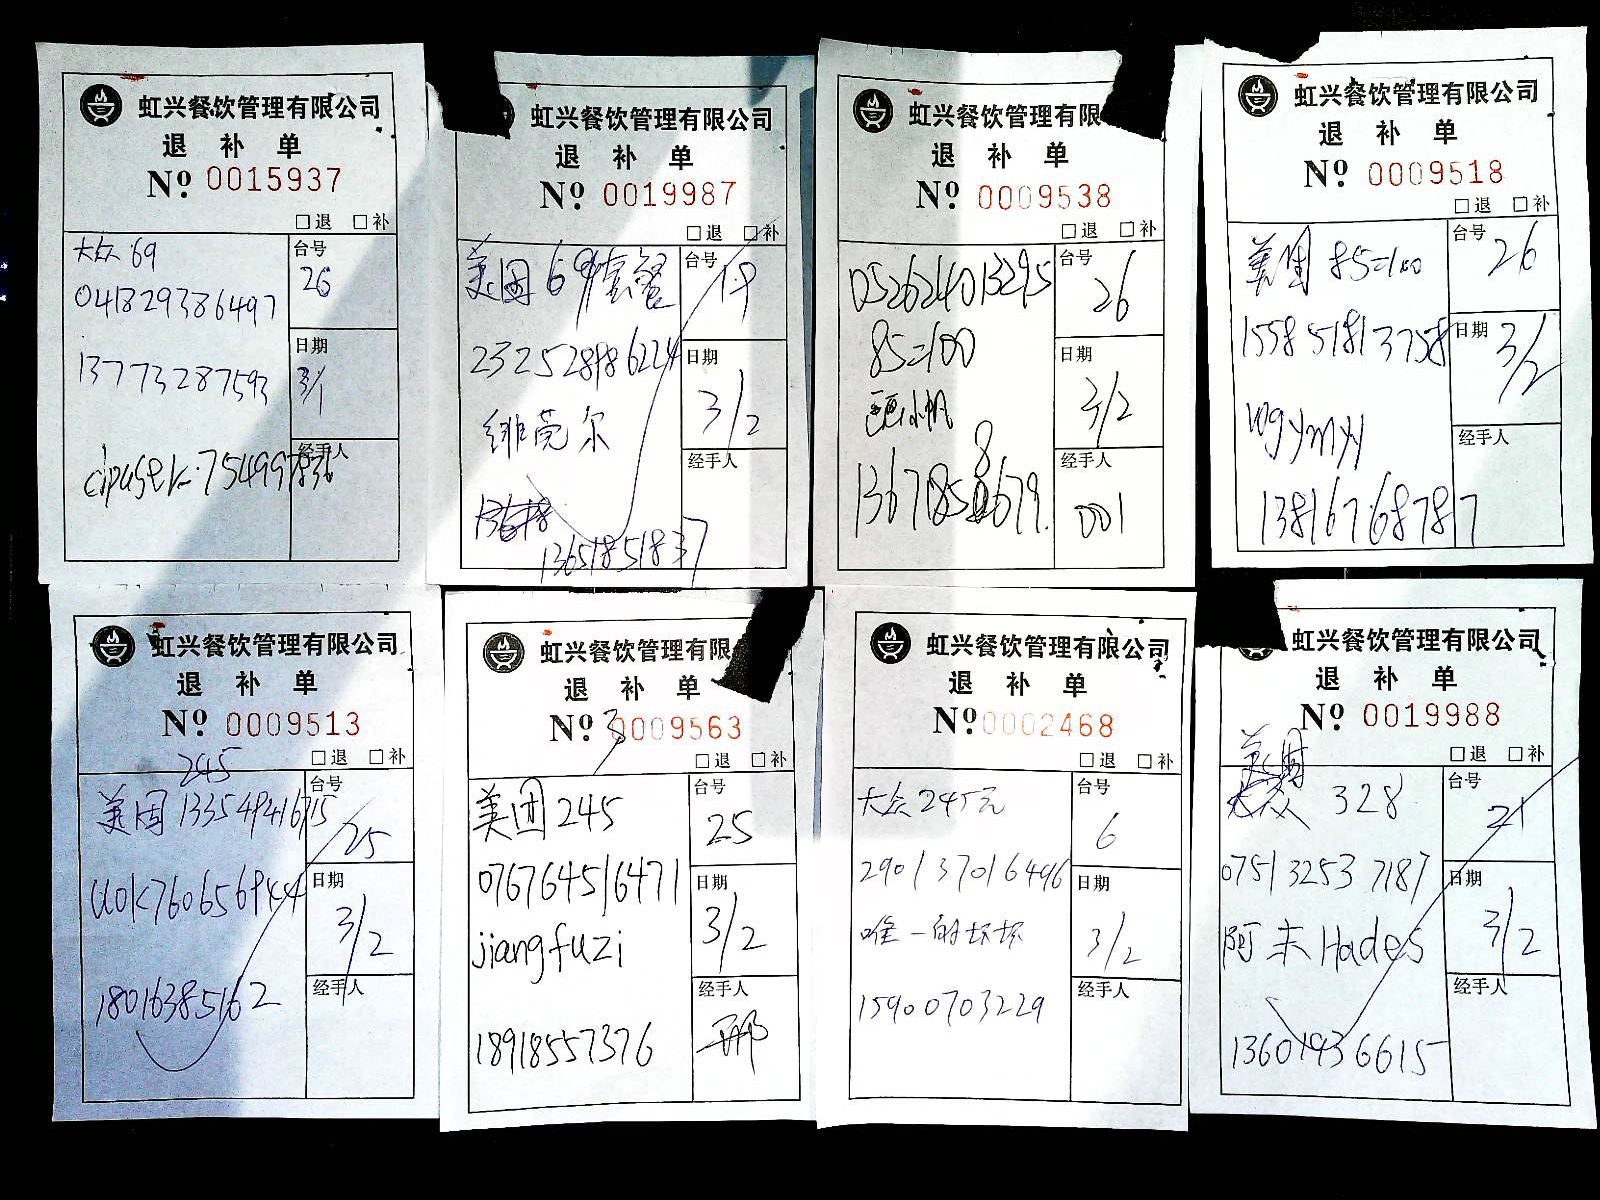 虹兴餐饮管理有限公司
退 补 单
№ 0015937
□退 □补
大众 69
台号
26
041829386497
日期
3/1
13773287593
经手人
cipuser-75499836
虹兴餐饮管理有限公司
退 补 单
№ 0019987
□退 □补
美团 69套餐
台号
19
232528986224
日期
3/2
绯莞尔
经手人
13651851837
虹兴餐饮管理有限公
退 补 单
№ 0009538
□退 □补
052624013295
台号
26
85=100
日期
3/2
经手人
13671858679
001
虹兴餐饮管理有限公司
退 补 单
№ 0009518
□退 □补
美团 85=100
台号
26
155851813758
日期
3/2
wgymyy
经手人
13816768787
虹兴餐饮管理有限公司
退 补 单
№ 0009513
□退 □补
245
美团 133549416715
台号
25
UOK760656944
日期
3/2
18016385162
经手人
虹兴餐饮管理有限
退 补 单
№ 0009563
□退 □补
美团 245
台号
25
076764516471
日期
3/2
jiangfuzi
经手人
18918557376
邢
虹兴餐饮管理有限公司
退 补 单
№ 0002468
□退 □补
大众 245元
台号
6
290137016496
日期
3/2
唯一的坏坏
经手人
15900703229
虹兴餐饮管理有限公司
退 补 单
№ 0019988
□退 □补
美团
328
台号
21
075132537187
日期
3/2
阿未Hades
经手人
13601936615